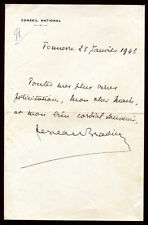 CONSEIL NATIONAL
Tonnerre 28 Janvier 1943
Toutes mes plus vives
félicitations, mon cher
et mon très cordial souvenir,